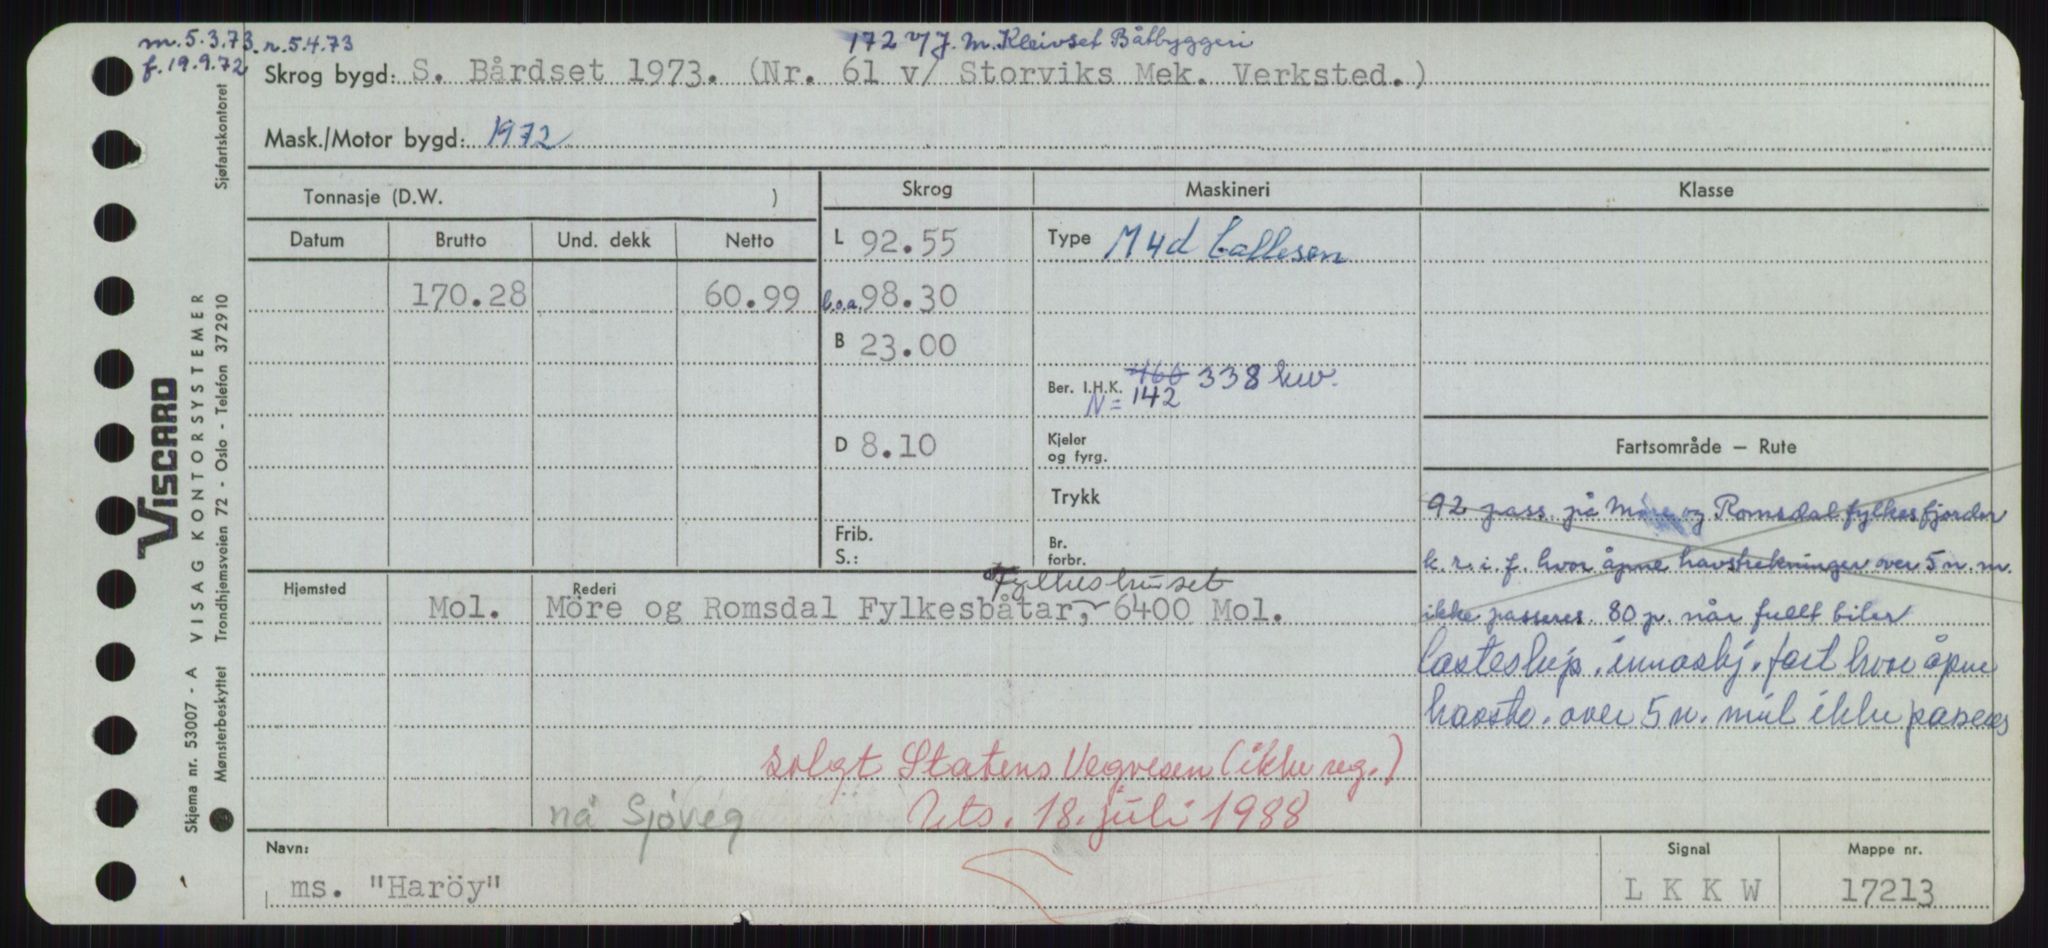 m. 5.3.73. r. 5.4.73
172 v/ J. M. Kleivset Båtbyggeri
f. 19.9.72
Skrog bygd: S. Bårdset 1973. (Nr. 61 v/ Storviks Mek. Verksted.)
Mask./Motor bygd: 1972
Tonnasje (D.W. )
Skrog
Maskineri
Klasse
Datum
Brutto
Und. dekk
Netto
L 92.55
Type M4d Callesen
170.28
60.99
l.o.a. 98.30
B 23.00
Ber. I.H.K. 460 338 kw.
N= 142
D 8.10
Kjeler
og fyrg.
Fartsområde — Rute
Trykk
92 pass. på Møre og Romsdal fylkes fjorder
Frib.
S.:
Br.
forbr.
k. r. i. f. hvor åpne havstrekninger over 5 n. m.
Fylkeshuset
Hjemsted
Rederi
Mol.
Möre og Romsdal Fylkesbåtar, 6400 Mol.
ikke passeres. 80 p. når fullt biler
lasteskip. innaskj. fart hvor åpne
havstr. over 5 n. mil ikke passeres
solgt Statens Vegvesen (ikke reg.)
nå Sjöveg
Uts. 18. juli 1988
Navn:
Signal
Mappe nr.
ms. "Haröy"
L K K W
17213
VISCARD
Skjema nr. 53007 - A VISAG KONTORSYSTEMER
Mønsterbeskyttet Trondhjemsveien 72 - Oslo - Telefon 372910 Sjøfartskontoret